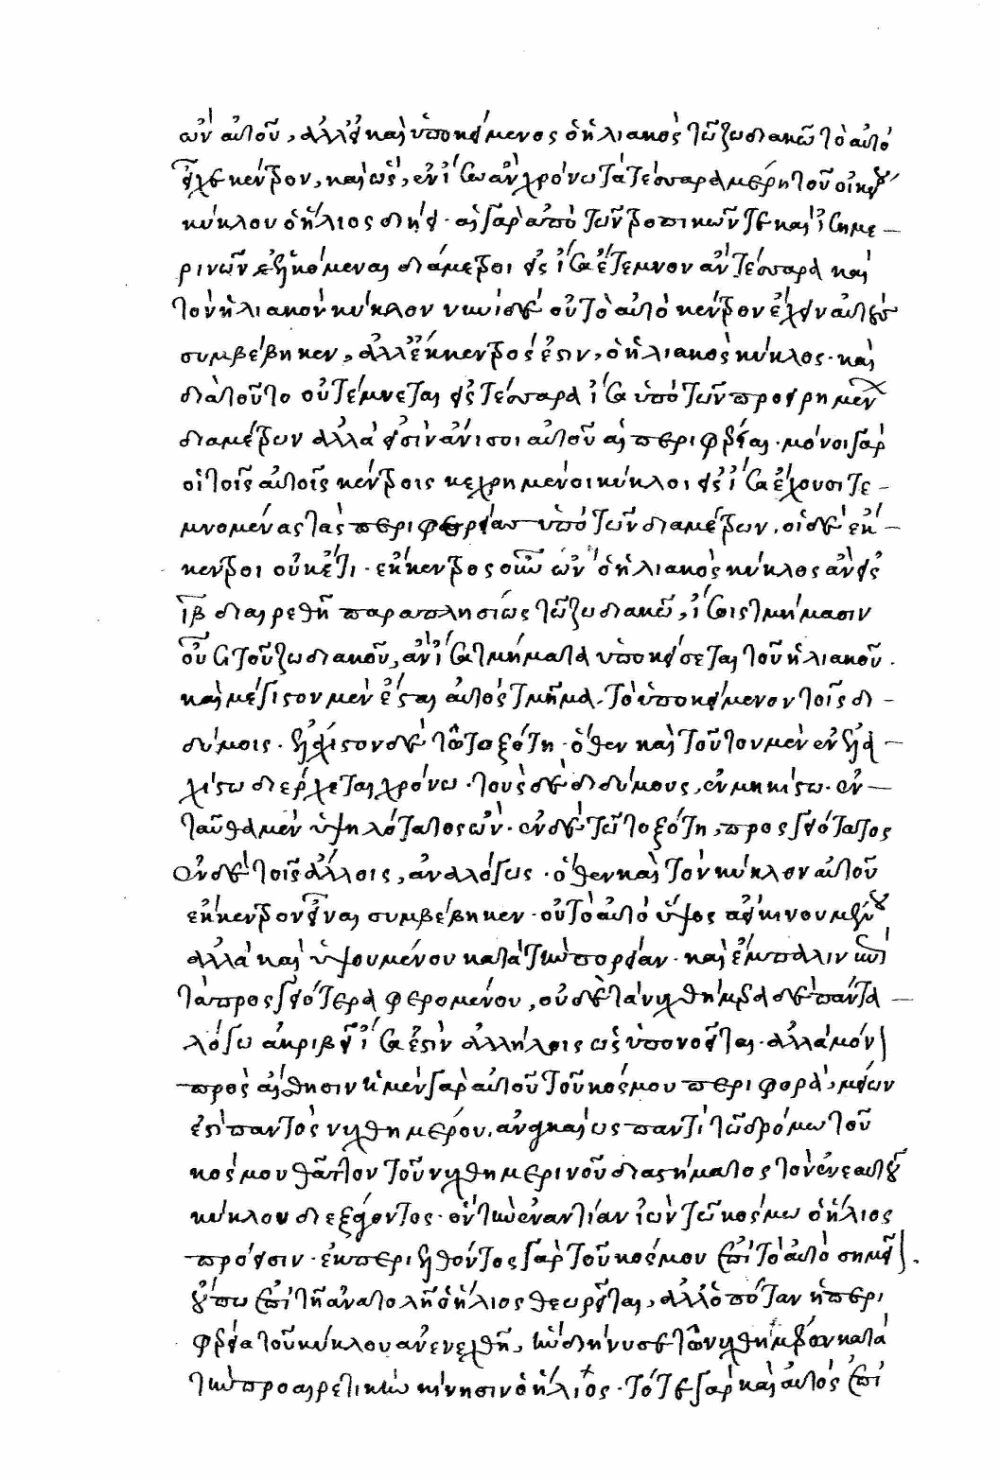 ὢν αὐτοῦ, ἀλλ' εἰ καὶ ὑποκείμενος ὁ ἡλιακὸς τῷ ζωδιακῷ τὸ αὐτὸ
εἶχε κέντρον, καὶ ὣς, ἐν ἴσῳ ἂν χρόνῳ τὰ τέσσαρα μέρη τοῦ οἰκείου
κύκλου ὁ ἥλιος διῄει· αἱ γὰρ ἀπὸ τῶν τροπικῶν τε καὶ ἰσημε–
ρινῶν ἐξηκόμεναι διάμετροι εἰς ἴσα ἔτεμνον ἂν τέσσαρα καὶ
τὸν ἡλιακὸν κύκλον νυνὶ δὲ οὐ τὸ αὐτὸ κέντρον ἔχειν αὐτοὺς
συμβέβηκεν, ἀλλ' ἔκκεντρός ἐστιν, ὁ ἡλιακὸς κύκλος· καὶ
διὰ τοῦτο οὐ τέμνεται εἰς τέσσαρα ἴσα ὑπὸ τῶν προειρημένων
διαμέτρων ἀλλά εἰσιν ἄνισοι αὐτοῦ αἱ περιφέρειαι· μόνοι γὰρ
οἱ τοῖς αὐτοῖς κέντροις κεχρημένοι κύκλοι εἰς ἴσα ἔχουσι τε–
μνομένας τὰς περιφερείας ὑπὸ τῶν διαμέτρων, οἱ δὲ ἔκ–
κεντροι οὐκέτι· ἔκκεντρος οὕτω ὢν ὁ ἡλιακὸς κύκλος ἂν εἰς
ιβ διαιρεθῇ παραπλησίως τῷ ζωδιακῷ, ἴσοις τμήμασιν
οὖσι τοῦ ζωδιακοῦ, ἄνισα τμήματα ὑποκείσεται τοῦ ἡλιακοῦ·
καὶ μέγιστον μὲν ἔσται αὐτὸς τμῆμα, τὸ ὑποκείμενον τοῖς δι–
δύμοις· ἐλάχιστον δὲ τῷ τοξότῃ· ὅθεν καὶ τοῦτον μὲν ἐν ἐλα–
χίστῳ διέρχεται χρόνῳ· τοὺς δὲ διδύμους, ἐν μηκίστῳ· ἐν–
ταῦθα μὲν ὑψηλότατος ὢν· ἐν δὲ τῷ τοξότῃ, προσγειότατος
ἐν δὲ τοῖς ἄλλοις, ἀναλόγως· ὅθεν καὶ τὸν κύκλον αὐτοῦ
ἔκκεντρον εἶναι συμβέβηκεν· οὐ τὸ αὐτὸ ὕψος ἀεὶ κινουμένου
ἀλλὰ καὶ ὑψουμένου κατὰ τὴν πορείαν· καὶ ἔμπαλιν ἐπὶ
τὰ προσγειότερα φερομένου, οὐδὲ τὰ νυχθήμερα δὲ πάντα
λόγῳ ἀκριβεῖ ἴσα ἐστὶν ἀλλήλοις ὡς ὑπονοεῖται· ἀλλὰ μόνον
πρὸς αἴσθησιν ἡ μὲν γὰρ αὐτοῦ τοῦ κόσμου περιφορὰ, μείων
ἐστὶ παντὸς νυχθημέρου, ἀνάγκαίως παντὶ τῷ δρόμῳ τοῦ
κόσμου θᾶττον τοῦ νυχθημερινοῦ διαστήματος τὸν ἕνεκα αὐτοῦ
κύκλου διεξάγοντος· ὃν τὴν ἐναντίαν ἰὼν τῷ κόσμῳ ὁ ἥλιος
πρόεισιν· ἐκπεριελθόντος γὰρ τοῦ κόσμου ἐπὶ τὸ αὐτὸ σημεῖον
οὔπω ἐπὶ τῇ ἀνατολῇ ὁ ἥλιος θεωρεῖται, ἀλλ' ὁπόταν ἡ περι
φέρεια τοῦ κύκλου ἀνενεχθῇ, ἣν διήνυσε τῷ νυχθημέρῳ κατὰ
τὴν προαιρετικὴν κίνησιν ὁ ἥλιος· τότε γὰρ καὶ αὐτὸς ἐπὶ